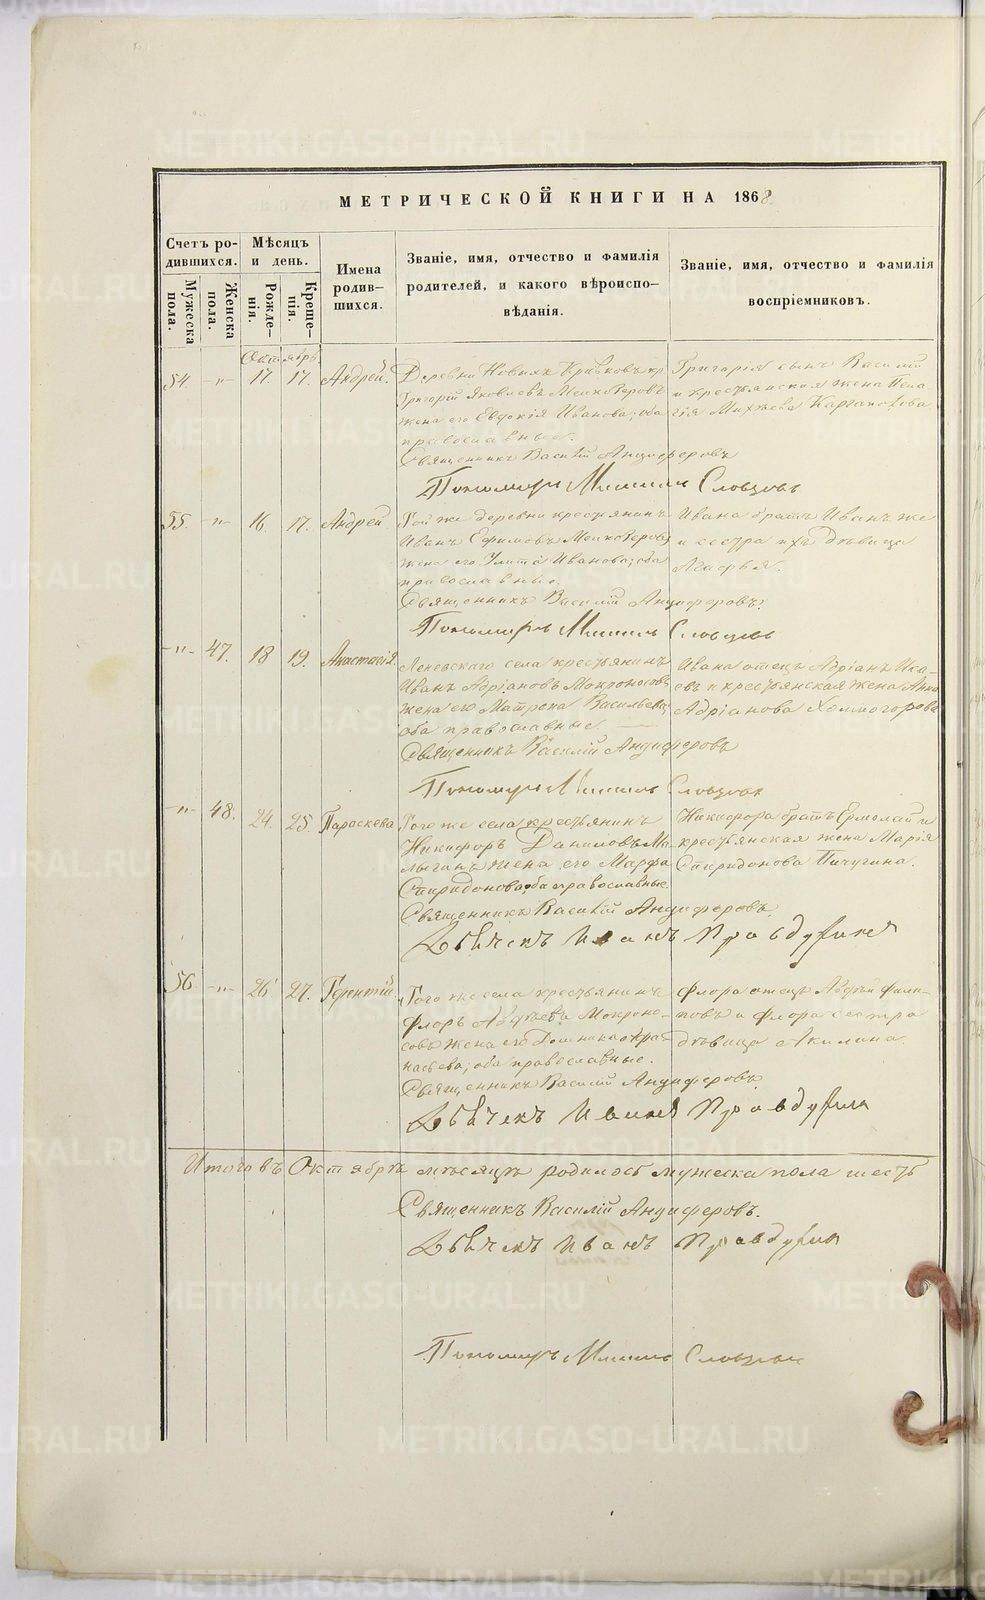 МЕТРИЧЕСКОЙ КНИГИ НА 1868
Счетъ ро-
дившихся.
Мѣсяцъ
и день.
Имена
родив-
шихся.
Званіе, имя, отчество и фамилія
родителей, и какого вѣроиспо-
вѣданія.
Званіе, имя, отчество и фамилія
воспріемниковъ.
Мужеска
пола.
Женска
пола.
Рожде-
нія.
Креще-
нія.
Октябрь
54 -"- 17. 17. Андрей.
Деревни Новыхъ Кривковъ кр
Григорій Яковлевъ
жена его Евдокія Иванова; оба
православные.
Священникъ Василій Анциферовъ
Пономарь Словцовъ
Григорія сынъ Василій
и крестьянская жена Пела
гія Каргаполова
55 -"- 16 17. Андрей
Той же деревни крестьянинъ
Иванъ Ефимовъ
жена его Улита Иванова; оба
православные.
Священникъ Василій Анциферовъ.
Пономарь Словцовъ
Ивана братъ Иванъ же
и сестра ихъ дѣвица
Агафья.
-"- 47. 18 19. Анастасія.
Леневскаго села крестьянинъ
Иванъ Адріановъ Мокроносовъ
жена его Матрона Васильева;
оба православные
Священникъ Василій Анциферовъ
Пономарь Словцовъ
Ивана отецъ Адріанъ Иса-
евъ и крестьянская жена Анна
Адріанова Холмогорова
-"- 48. 24. 25. Параскева
Того же села крестьянинъ
Никифоръ Даниловъ Ма-
лыгинъ жена его Марфа
Спиридонова; оба православные.
Священникъ Василій Анциферовъ
Дьячекъ Иванъ Правдухинъ
Никифора братъ Ермолай и
крестьянская жена Марія
Спиридонова Пичугина.
56 -"- 26 27. Терентій.
Того же села крестьянинъ
Флоръ Авдѣевъ Мокроно-
совъ жена его Домника Афа-
насьева; оба православные.
Священникъ Василій Анциферовъ
Дьячекъ Иванъ Правдухинъ
Флора отецъ Авдѣй Фили-
повъ и Флора сестра
дѣвица Акилина.
Итого въ Октябрѣ мѣсяцѣ родилось мужеска пола шесть
Священникъ Василій Анциферовъ.
Дьячекъ Иванъ Правдухинъ
Пономарь Словцовъ
METRIKI.GASO-URAL.RU